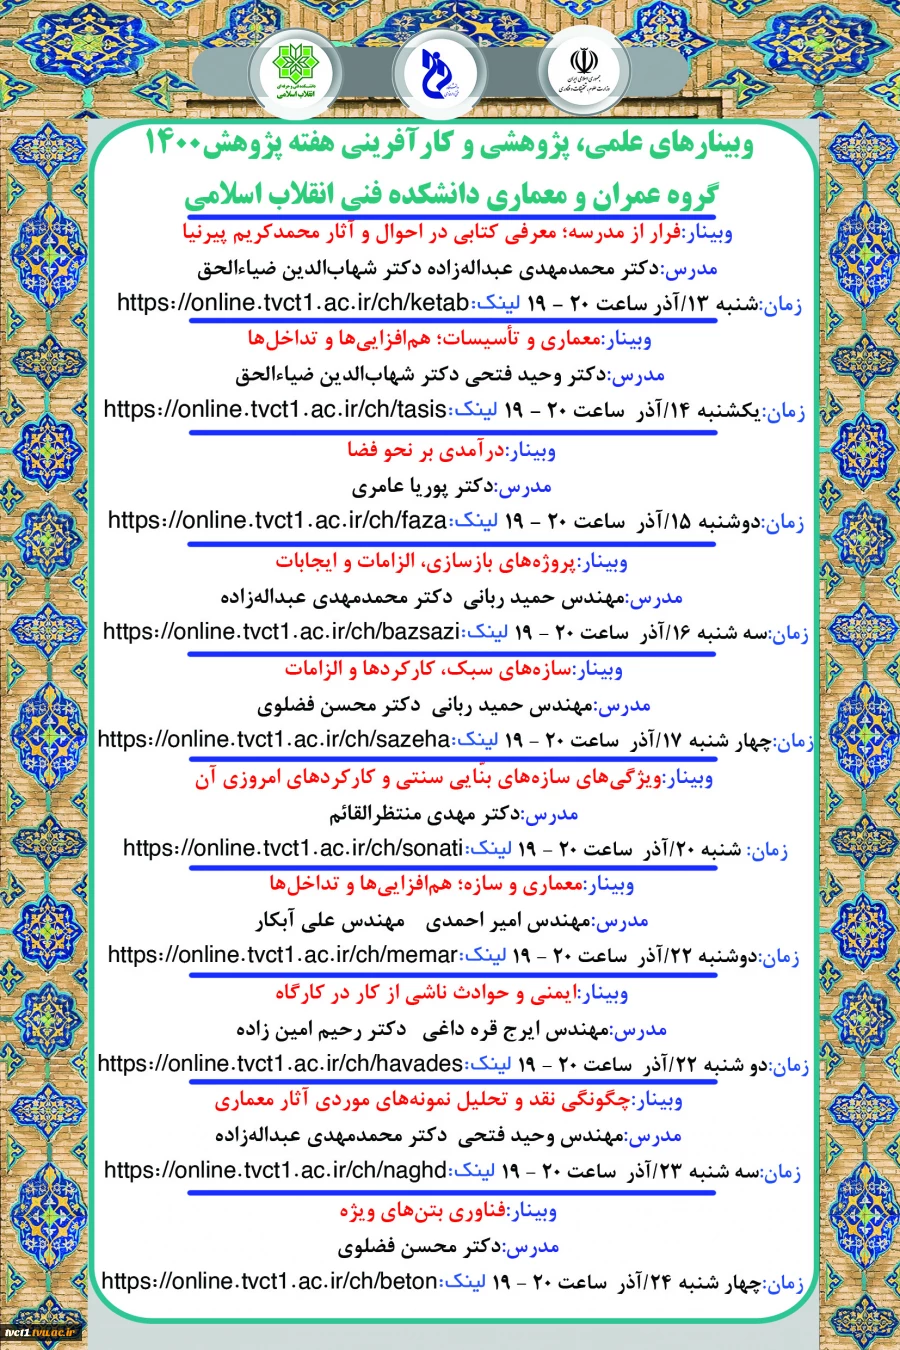 دانشکده فنی و حرفه‌ای
انقلاب اسلامی
جمهوری اسلامی ایران
وزارت علوم، تحقیقات و فناوری
وبینارهای علمی، پژوهشی و کارآفرینی هفته پژوهش۱۴۰۰
گروه عمران و معماری دانشکده فنی انقلاب اسلامی
وبینار:فرار از مدرسه؛ معرفی کتابی در احوال و آثار محمدکریم پیرنیا
مدرس:دکتر محمدمهدی عبداله‌زاده دکتر شهاب‌الدین ضیاءالحق
زمان:شنبه ۱۳/آذر ساعت ۲۰ - ۱۹ لینک:https://online.tvct1.ac.ir/ch/ketab
وبینار:معماری و تأسیسات؛ هم‌افزایی‌ها و تداخل‌ها
مدرس:دکتر وحید فتحی دکتر شهاب‌الدین ضیاءالحق
زمان:یکشنبه ۱۴/آذر ساعت ۲۰ - ۱۹ لینک:https://online.tvct1.ac.ir/ch/tasis
وبینار:درآمدی بر نحو فضا
مدرس:دکتر پوریا عامری
زمان:دوشنبه ۱۵/آذر ساعت ۲۰ - ۱۹ لینک:https://online.tvct1.ac.ir/ch/faza
وبینار:پروژه‌های بازسازی، الزامات و ایجابات
مدرس:مهندس حمید ربانی دکتر محمدمهدی عبداله‌زاده
زمان:سه شنبه ۱۶/آذر ساعت ۲۰ - ۱۹ لینک:https://online.tvct1.ac.ir/ch/bazsazi
وبینار:سازه‌های سبک، کارکردها و الزامات
مدرس:مهندس حمید ربانی دکتر محسن فضلوی
زمان:چهار شنبه ۱۷/آذر ساعت ۲۰ - ۱۹ لینک:https://online.tvct1.ac.ir/ch/sazeha
وبینار:ویژگی‌های سازه‌های بنّایی سنتی و کارکردهای امروزی آن
مدرس:دکتر مهدی منتظرالقائم
زمان: شنبه ۲۰/آذر ساعت ۲۰ - ۱۹ لینک:https://online.tvct1.ac.ir/ch/sonati
وبینار:معماری و سازه؛ هم‌افزایی‌ها و تداخل‌ها
مدرس:مهندس امیر احمدی مهندس علی آبکار
زمان:دوشنبه ۲۲/آذر ساعت ۲۰ - ۱۹ لینک:https://online.tvct1.ac.ir/ch/memar
وبینار:ایمنی و حوادث ناشی از کار در کارگاه
مدرس:مهندس ایرج قره داغی دکتر رحیم امین زاده
زمان:دو شنبه ۲۲/آذر ساعت ۲۰ - ۱۹ لینک:https://online.tvct1.ac.ir/ch/havades
وبینار:چگونگی نقد و تحلیل نمونه‌های موردی آثار معماری
مدرس:مهندس وحید فتحی دکتر محمدمهدی عبداله‌زاده
زمان:سه شنبه ۲۳/آذر ساعت ۲۰ - ۱۹ لینک:https://online.tvct1.ac.ir/ch/naghd
وبینار:فناوری بتن‌های ویژه
مدرس:دکتر محسن فضلوی
زمان:چهار شنبه ۲۴/آذر ساعت ۲۰ - ۱۹ لینک:https://online.tvct1.ac.ir/ch/beton
tvct1.tvu.ac.ir